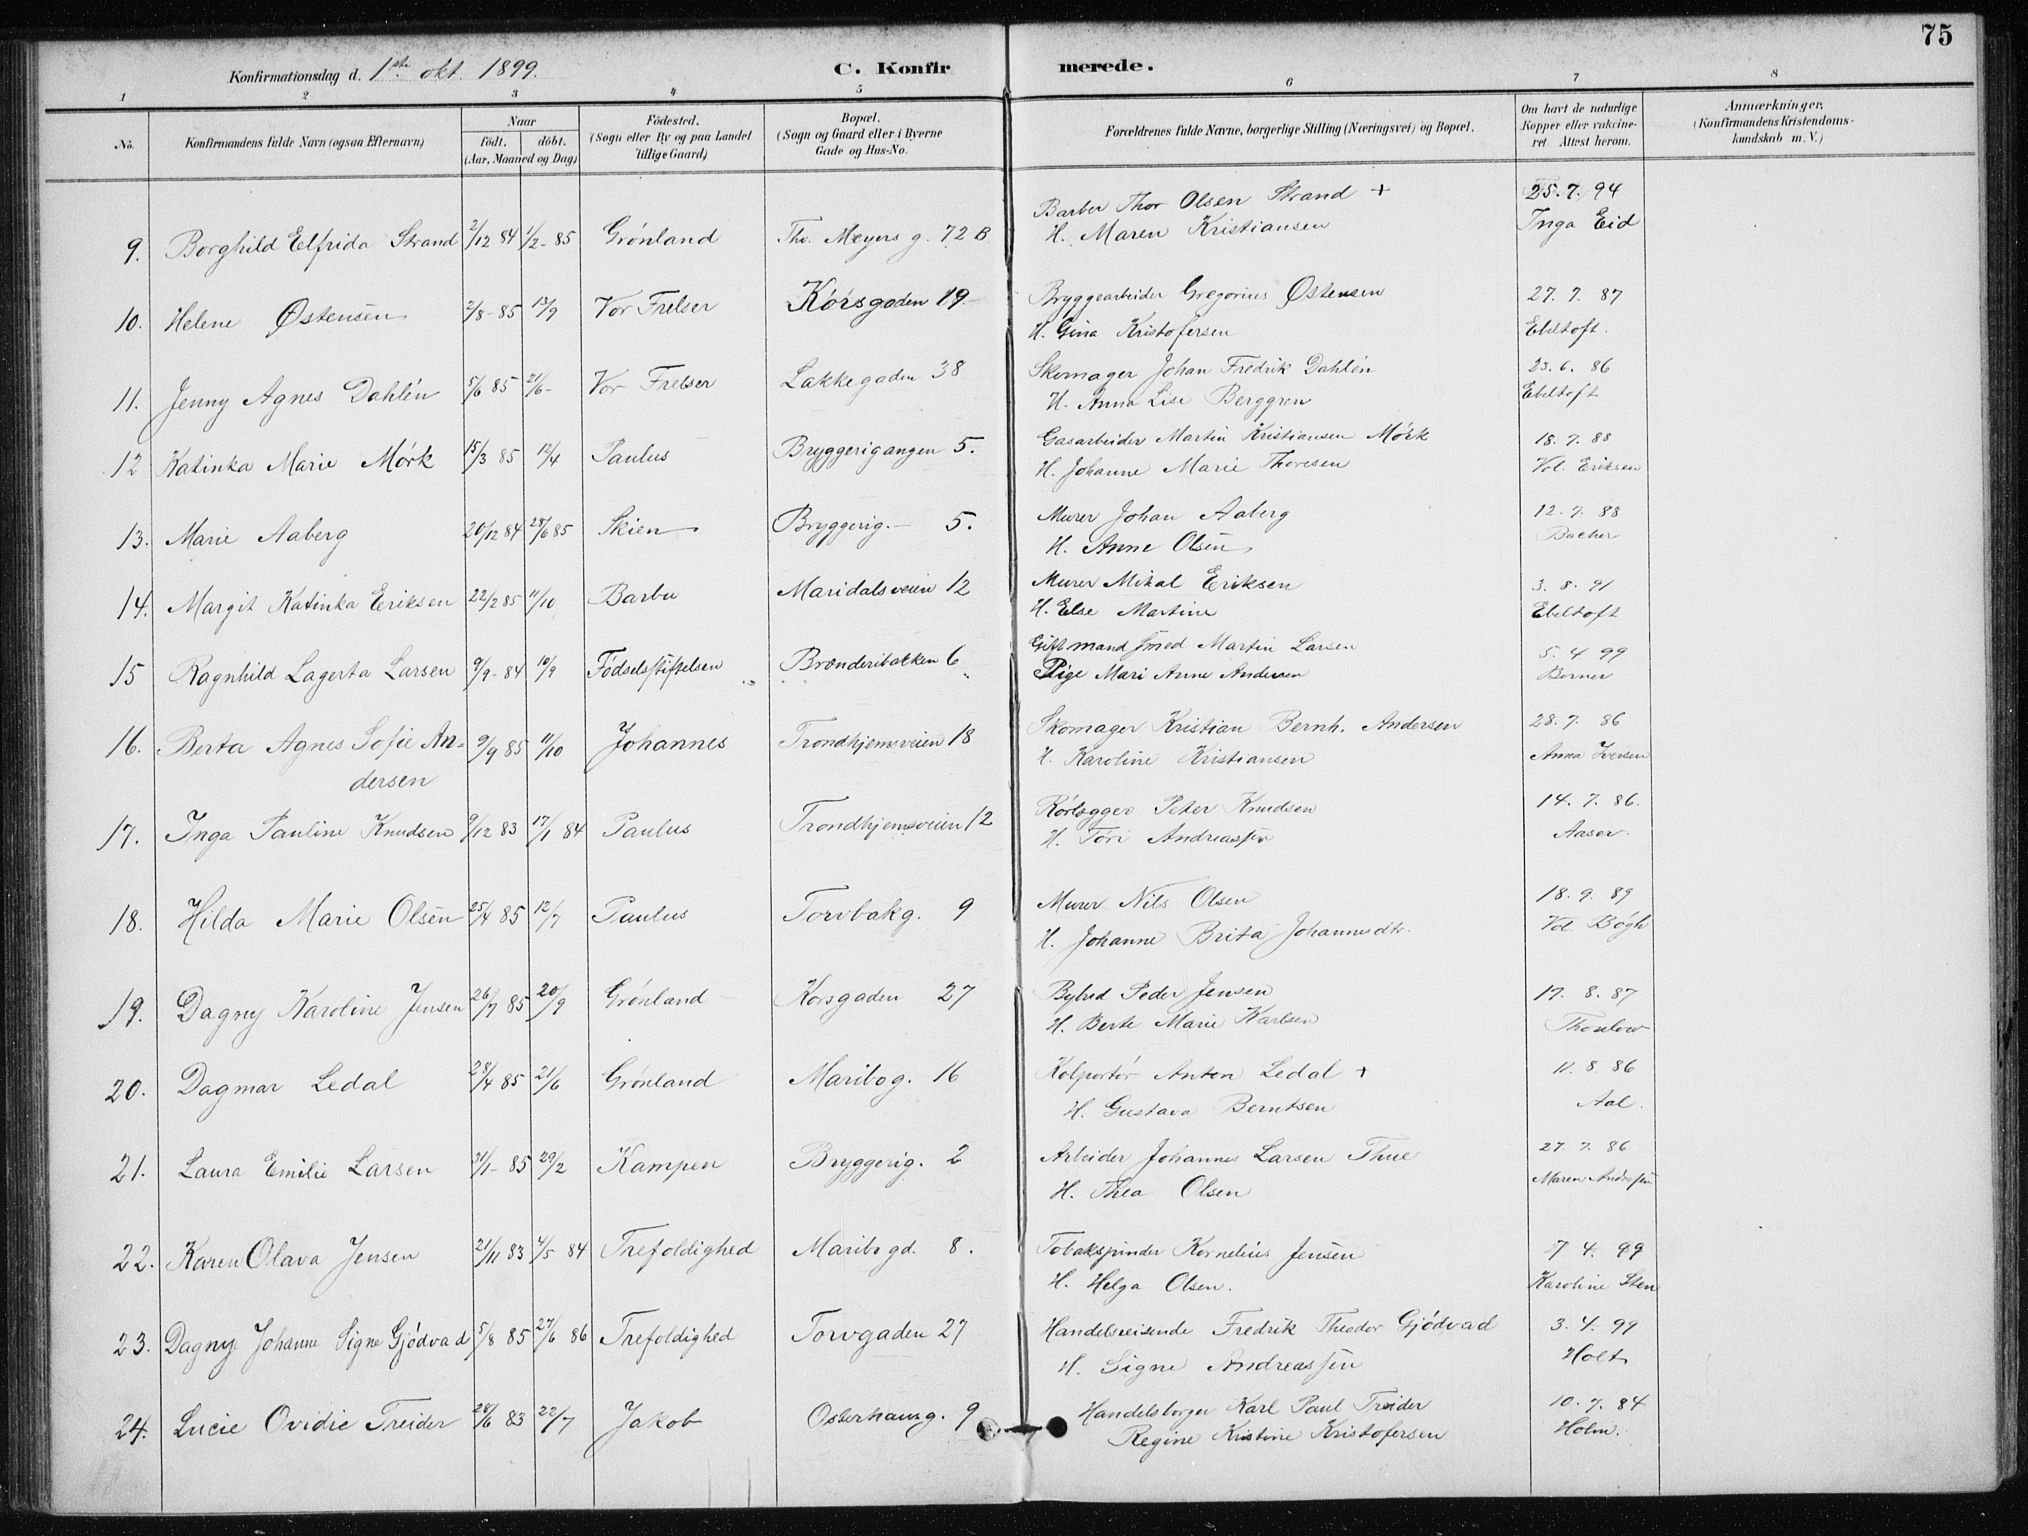 75
Konfirmationsdag d. 1ste okt. 1899.
C. Konfirmerede.
1 2 3 4 5 6 7 8
No.
Konfirmandens fulde Navn (ogsaa Efternavn)
Naar
födt. döbt.
(Aar, Maaned og Dag)
Födested.
(Sogn eller By og paa Landet
tillige Gaard)
Bopæl.
(Sogn og Gaard eller i Byerne
Gade og Hus-No.
Forældrenes fulde Navne, borgerlige Stilling (Næringsvei) og Bopæl.
Om havt de naturlige
Kopper eller vakcine-
ret. Attest herom.
Anmærkninger.
(Konfirmandens Kristendoms-
kundskab m. V.)
9. Borghild Elfrida Strand 2/12 84 1/2-85 Grönland Thv. Meyers g. 72 B Barber Thor Olsen Strand + 25.7.94
H. Maren Kristiansen Inga Eid
10. Helene Østensen 2/8-85 13/9 Vor Frelser Korsgaden 19 Bryggearbeider Gregorius Østensen 27.7.87
H. Gina Kristofersen Ebeltoft.
11. Jenny Agnes Dahlén 5/6 85 21/6- Vor Frelser Lakkegaden 38 Skomager Johan Fredrik Dahlén 23.6.86
H. Anna Lise Berggren Ebeltoft
12 Katinka Marie Mörk 15/3 85 12/4 Paulus Bryggerigangen 5. Gasarbeider Martin Kristiansen Mörk 18.7.88
H. Johanne Marie Thoresen Vol. Eriksen
13. Marie Aaberg 20/12 84 28/6 85 Skien Bryggerig.- 5. Murer Johan Aaberg 12.7.88
H. Anne Olsen Bacher
14. Margit Katinka Eriksen 22/2 85 11/10 Barbu Maridalsveien 12 Murer Mikal Eriksen 3.8.91
H. Else Martine Ebeltoft
15 Ragnhild Lagerta Larsen 9/9-84 10/9 Födselsstiftelsen Brænderibakken 6 Gift mand Smed Martin Larsen 5.4 99
Pige Mari Anne Andersen Berner
16. Berta Agnes Sofie An- 9/9 85 11/10 Johannes Trondhjemsveien 18 Skomager Kristian Bernh. Andersen 28.7.86
dersen H. Karoline Kristiansen Anna Iversen
17. Inga Pauline Knudsen 9/12 83 17/1 84 Paulus Trondhjemsveien 12 Rörlægger Peter Knudsen 14.7.86.
H. Tori Andreassen Aaser.
18. Hilda Marie Olsen 25/4 85 12/7 Paulus Torvbakg. 9 Murer Nils Olsen 18.9.89
H. Johanne Brita Johannesdtr. Vol. Bögh
19. Dagny Karoline Jensen 26/7 85 20/9 Grönland Korsgaden 27 Bybud Peder Jensen 17.8.87
H. Berte Marie Karlsen
20. Dagmar Ledal 28/4 85 21/6 Grönland Maribog. 16 Kolportör Anton Ledal + 11.8.86
H. Gustava Berntsen Aal.
21. Laura Emilie Larsen 31/1-85 29/2 Kampen Bryggerig. 2 Arbeider Johannes Larsen Thue 27.7.86
H. Thea Olsen Maren Andresen
22. Karen Olava Jensen 21/11 83 4/5 84 Trefoldighed Maribogd. 8. Tobakspinder Kornelius Jensen 7 4.99
H. Helga Olsen. Karoline Sten
23. Dagny Johanne Signe Gjödvad 5/8 85 27/6 86 Trefoldighed Torvgaden 27 Handelsreisende Fredrik Theodor Gjödvad 3.4.99
H. Signe Andreassen Holt
24. Lucie Ovidie Treider 28/6 83 22/7 Jakob Osterhausg. 9 Handelsborger Karl Paul Treider 10.7.84
Regine Kristine Kristofersen Holm.